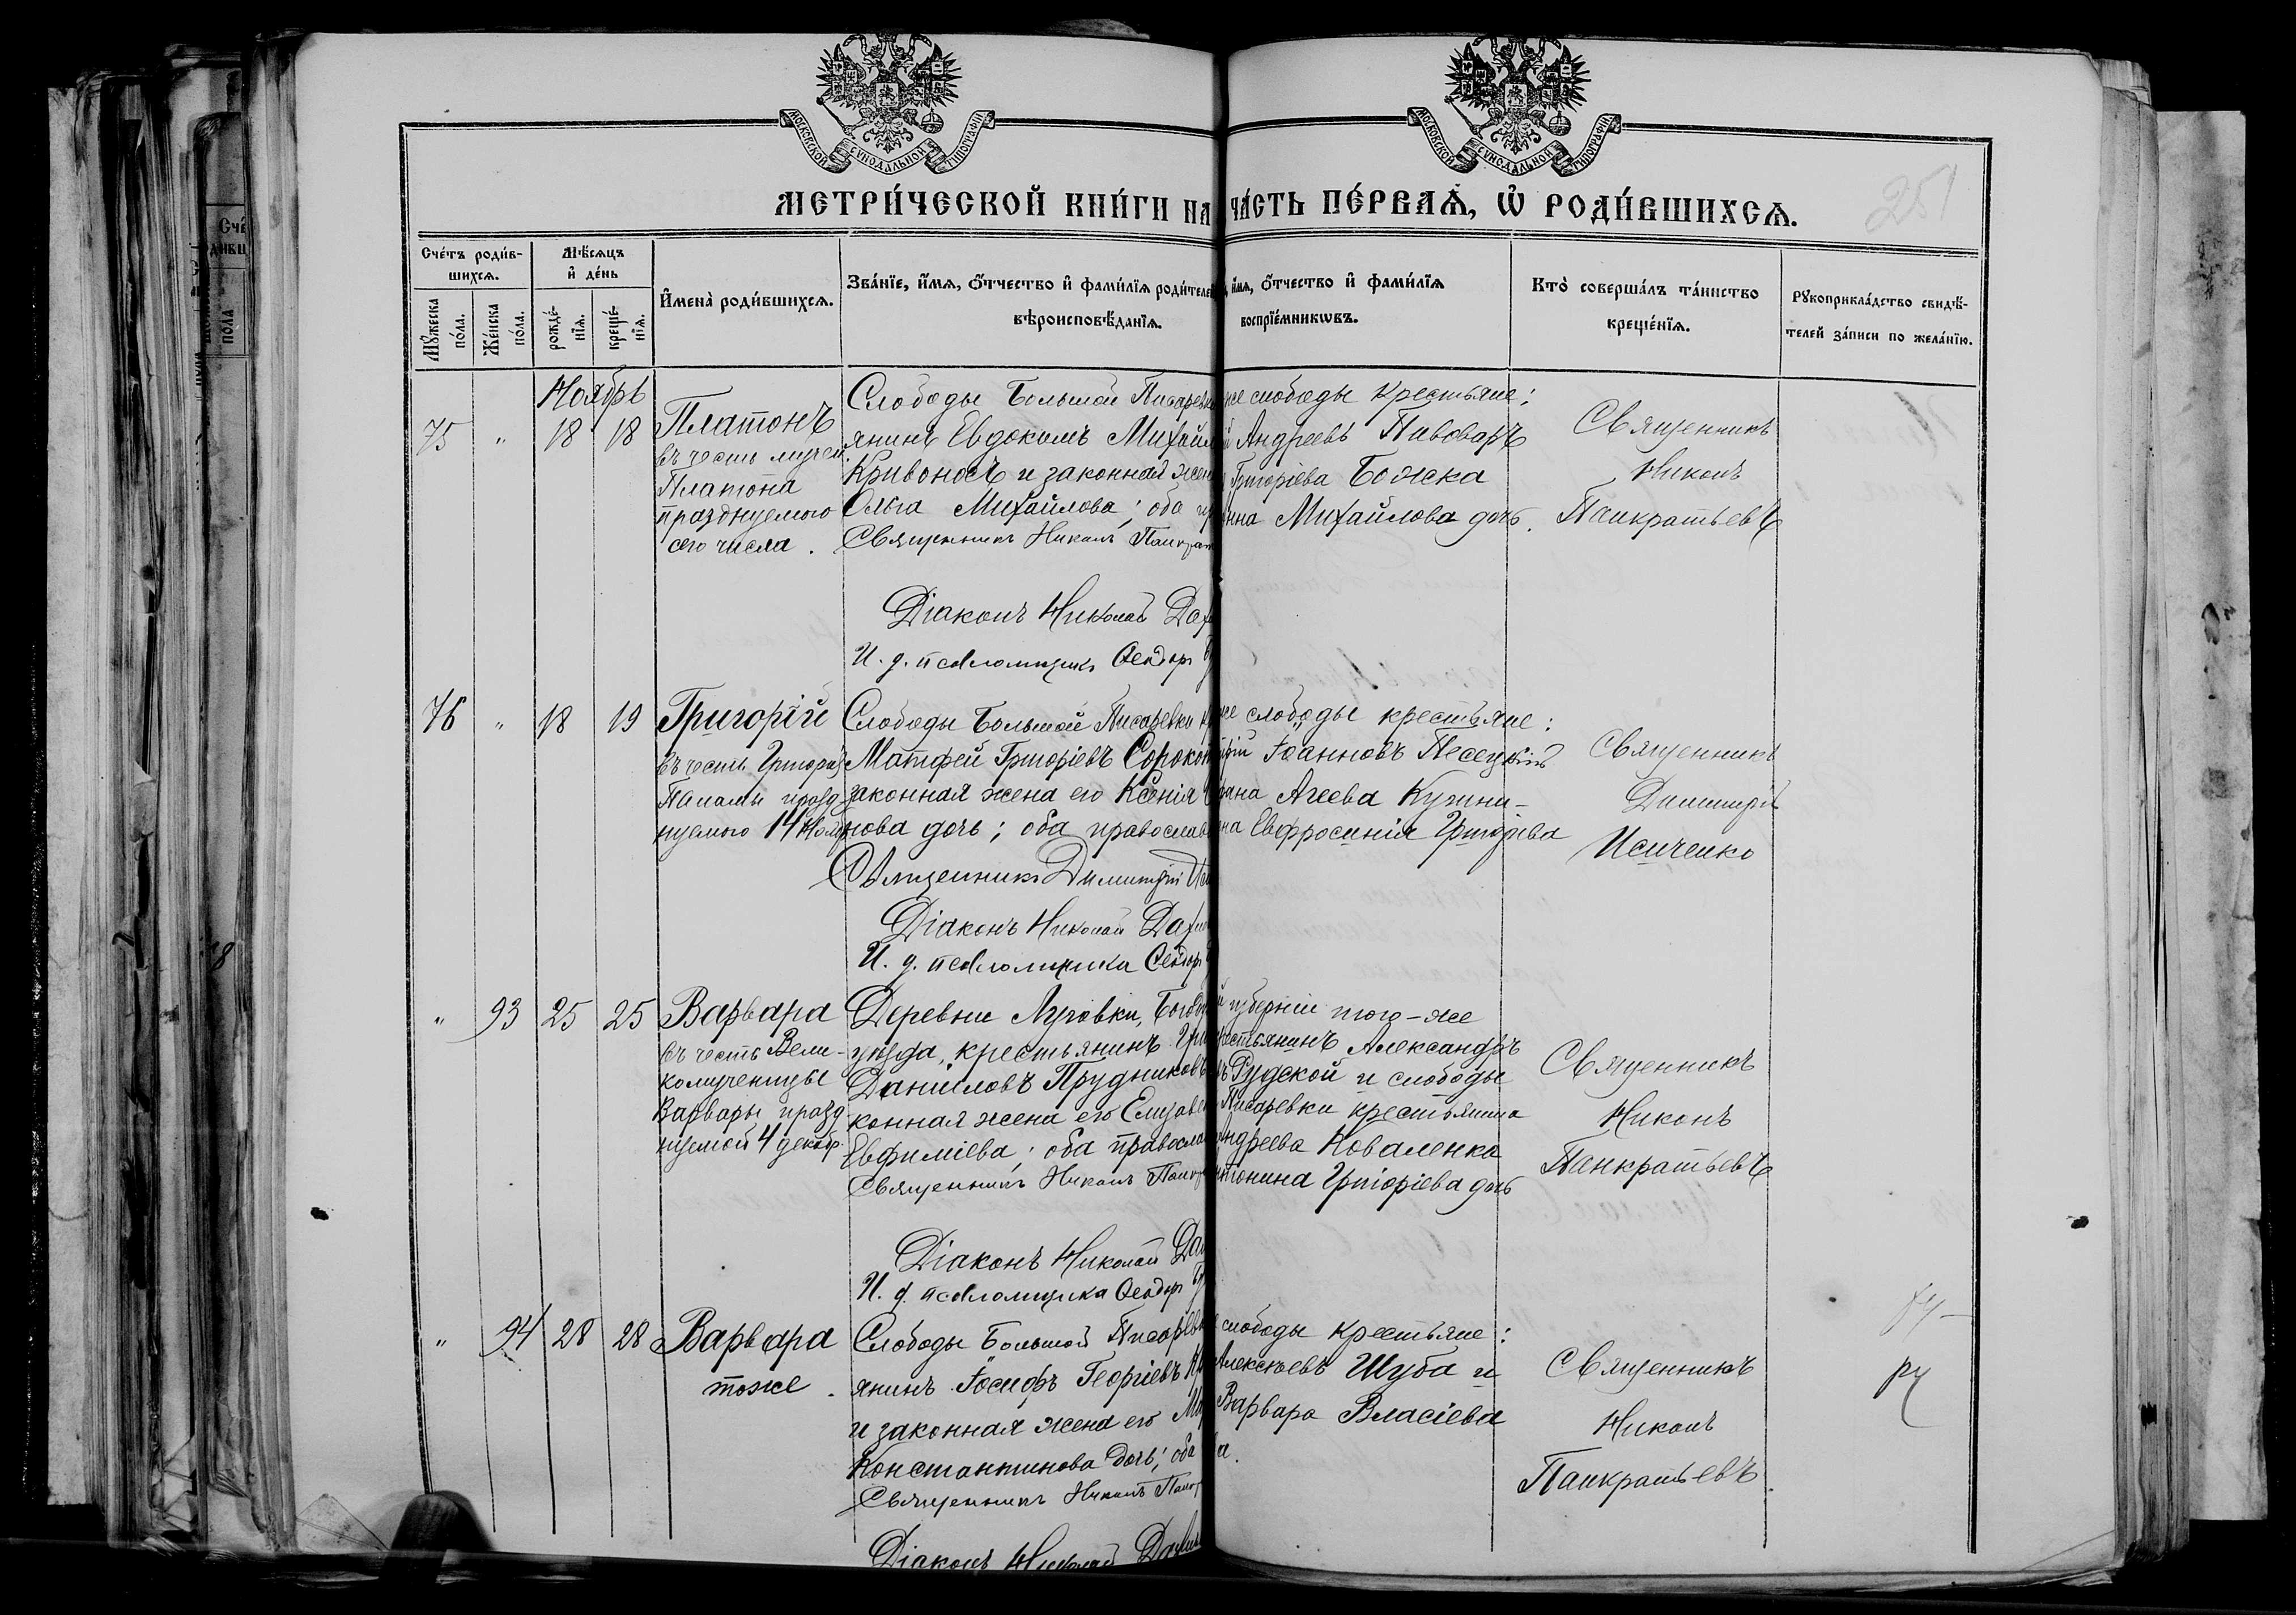 МОСКОВСКОЙ СѴНОДАЛЬНОЙ ТИПОГРАФІИ
МОСКОВСКОЙ СѴНОДАЛЬНОЙ ТИПОГРАФІИ
МЕТРИ́ЧЕСКОЙ КНИ́ГИ НА
ЧА́СТЬ ПЕ́РВАѦ, Ѽ РОДИ́ВШИХСѦ.
251
Сче́тъ роди́в-
шихсѧ.
Мꙋ́жеска
по́ла.
Же́нска
по́ла.
Мѣ́сѧцъ
и҆ де́нь
рожде́-
нїѧ.
креще́-
нїѧ.
И҆мена̀ роди́вшихсѧ.
Зва́нїе, и҆́мѧ, ѻ҆́тчество и҆ фами́лїѧ роди́телей
вѣроисповѣ́данїѧ.
и҆́мѧ, ѻ҆́тчество и҆ фами́лїѧ
воспрїе́мникѡвъ.
Кто̀ соверша́лъ та́инство
креще́нїѧ.
Рꙋкоприкла́дство свидѣ́-
телей за́писи по жела́нїю.
Ноябрь
75 " 18 18
Платонъ
въ честь мучен.
Платона
празднуемого
сего числа.
Слободы Большой Писаревки
янинъ Евдокимъ Михайл
Кривоносъ и законная жен
Ольга Михайлова; оба пр
Священникъ Никонъ Панкрат
Діаконъ Николай Дах
И. д. псаломщика Ѳеодоръ
же слободы крестьяне:
Андреевъ Пивоваръ
Григоріева Божка
Михайлова дочь.
Священникъ
Никонъ
Панкратьевъ
76 " 18 19
Григорій
въ честь Григорія
Паламы празд-
нуемого 14 Нояб
Слободы Большой Писаревки кр
Матѳей Григоріевъ Сорокон
законная жена его Ксенія
нова дочь; оба православ
Священникъ Димитрій Иси
Діаконъ Николай Дахн
И. д. псаломщика Ѳеодоръ
же слободы крестьяне:
Іоанновъ Песецкій
Агеева Кузьми-
на Евфросинія Григоріева
Священникъ
Димитрій
Исиченко
" 93 25 25
Варвара
въ честь Вели-
комученицы
Варвары празд-
нуемой 4 декабр.
Деревни Луговки, Богоду
уѣзда, крестьянинъ Гри
Даніиловъ Прудниковъ
конная жена его Елизаве
Евфиміева; оба правосла
Священникъ Никонъ Панкр
Діаконъ Николай Дах
И. д. псаломщика Ѳеодоръ
губерніи того-же
крестьянинъ Александръ
Рудской и слободы
Писаревки крестьянина
Андреева Коваленка
Антонина Григоріева дочь
Священникъ
Никонъ
Панкратьевъ
" 94 28 28
Варвара
тоже.
Слободы Большой Писаревк
янинъ Іосифъ Георгіевъ
и законная жена его Ма
Константинова дочь; оба
Священникъ Никонъ Панкр
Діаконъ Николай Дахн
слободы крестьяне:
Алексѣевъ Шуба и
Варвара Власіева
Священникъ
Никонъ
Панкратьевъ.